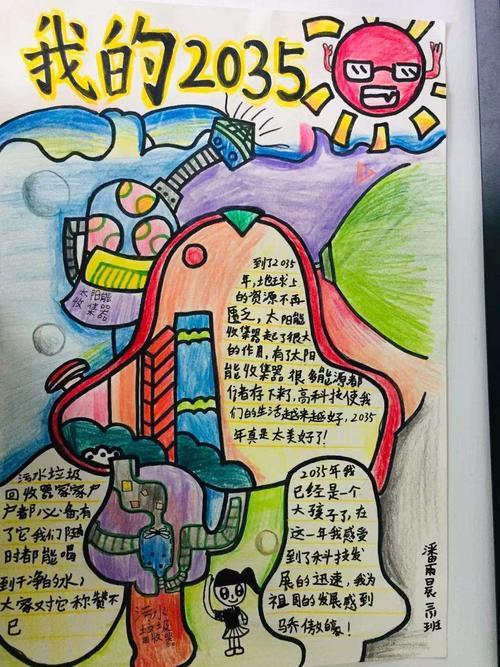 我的2035
到了2035
年，地球上
的资源不再
匮乏，太阳能
收集器起了很大
的作用，有了太阳
能收集器很多能源都
存下来了，高科技使我
们的生活越来越好，2035
年真是太美好了！
太阳能
收集器
污水垃圾
回收器家家户
户都必备有
了它我们随
时都能喝
到干净的水，
大家对它称赞不
已
污水
垃圾
2035年我
已经是一个
大孩子了，在
这一年我感受
到了科技发
展的迅速，我为
祖国的发展感到
骄傲自豪！
潘雨晨